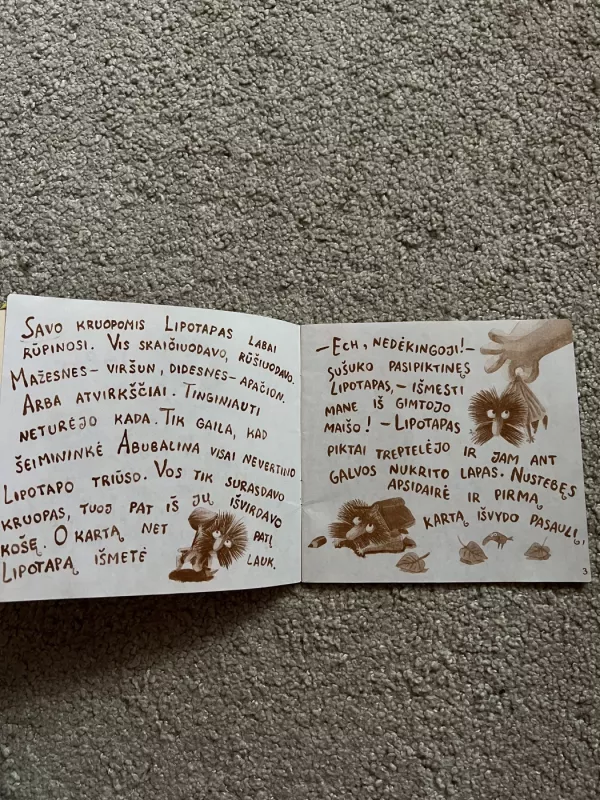 SAVO KRUOPOMIS LIPOTAPAS LABAI
RŪPINOSI. VIS SKAIČIUODAVO, RŪŠIUODAVO.
MAŽESNES – VIRŠUN, DIDESNES – APAČION.
ARBA ATVIRKŠČIAI. TINGINIAUTI
NETURĖJO KADA. TIK GAILA, KAD
ŠEIMININKĖ ABUBALINA VISAI NEVERTINO
LIPOTAPO TRIŪSO. VOS TIK SURASDAVO
KRUOPAS, TUOJ PAT IŠ JŲ IŠVIRDAVO
KOŠĘ. O KARTĄ NET PATĮ
LIPOTAPĄ IŠMETĖ LAUK.
– ECH, NEDĖKINGOJI! –
SUŠUKO PASIPIKTINĘS
LIPOTAPAS, – IŠMESTI
MANE IŠ GIMTOJO
MAIŠO! – LIPOTAPAS
PIKTAI TREPTELĖJO IR JAM ANT
GALVOS NUKRITO LAPAS. NUSTEBĘS
APSIDAIRĖ IR PIRMĄ
KARTĄ IŠVYDO PASAULĮ.
3